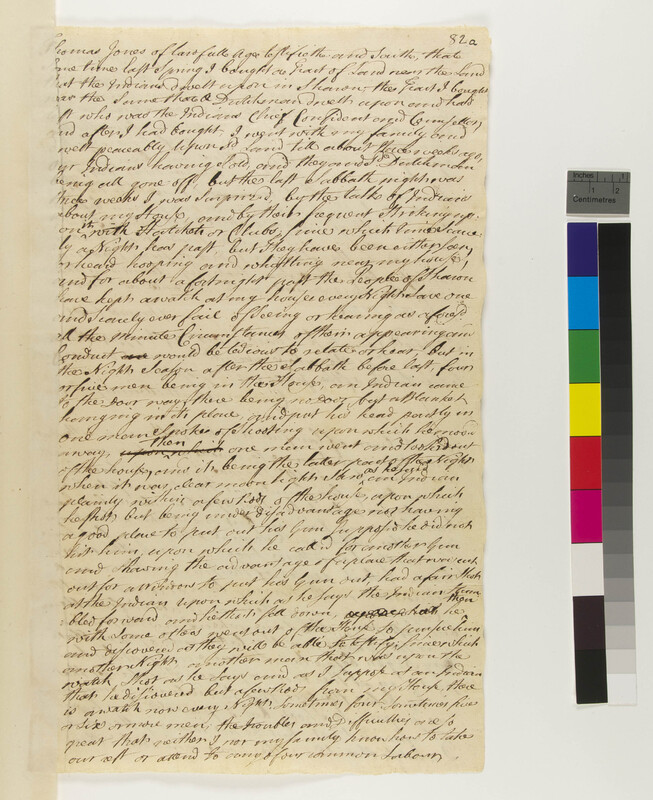 82a
Thomas Jones of lawfull Age testifieth and saith, that
some time last Spring I bought a Tract of Land near the Land
that the Indians dwelt upon in Sharon the Tract I bought
was the Same that a Dutchman dwelt upon and had
who was the Indians Chief Confident and Counsellor
and after I had bought I went with my family and
dwelt peaceably upon sd Land till about three weeks ago,
Indians having sold, and they and sd Dutchman
being all gone off, but the last Sabbath night was
three weeks I was Surprized, by the talk of Indians
about my House, and by their frequent Striking up-
on it with Hatchets or Clubs, Since which time scarce-
ly a Night has past, but they have been either seen
or heard hooping and whistling near my house,
and for about a fortnight past the People of Sharon
have kept a watch at my house every Night save one
and scarcely ever fail of seeing or hearing as aforesd
all the Minute Circumstances of them appearing and
Conduct would be tedious to relate or hear, but in
the Night Season after the Sabbath before last, four
or five men being in the House, an Indian came
to the door way, there being no door but a blanket
hanging in its place, and put his head partly in
one man Spoke of shooting upon which he mov'd
away, then one man went and looked out
of the house, and it being the later part of the Night
when it was clear moon light saw as he said an Indian
plainly within a few Rods of the house upon which
he shot but being under disadvantage not having
a good place to put out his Gun Suppos'd he did not
hit him, upon which he called for another Gun
and having the advantage of a place that was cut
out for a window to put his Gun out, had a fair Shot
at the Indian upon which as he says the Indian Stum
bled forward and he thinks fell down, then he
with Some others went out of the House to pursue him
and discovered as they will be able to testify, Since which
another Night another man that was upon the
watch, Shot as he says and as I suppose at an Indian
that he discovered but a few Rods from my House, there
is a watch now every Night Sometimes four Sometimes five
or Six or more men, the troubles and Difficulties are so
great that neither I nor my family know how to take
our rest or attend to any of our common Labour,
Inches
1
2
Centimetres